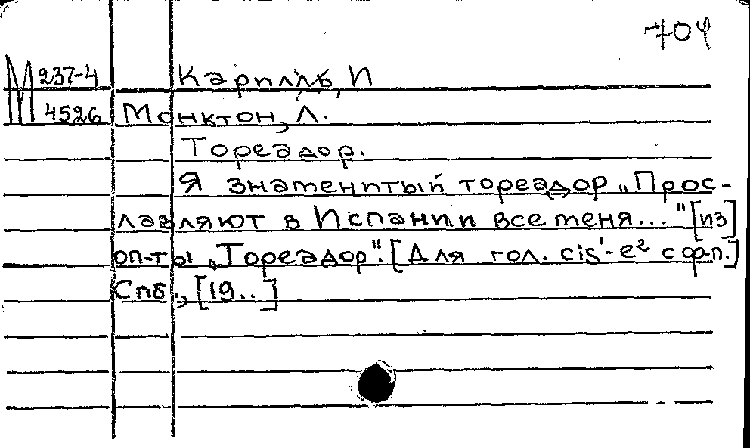 704
М 237-4
4526
Карилль, И
Монктон, Л.
Тореадор.
Я знаменитый тореадор „Прос-
лавляют в Испании все меня..." [из
оп-ты „Тореадор". [Для гол. cis'-e² с ф-п.]
Спб., [19..]